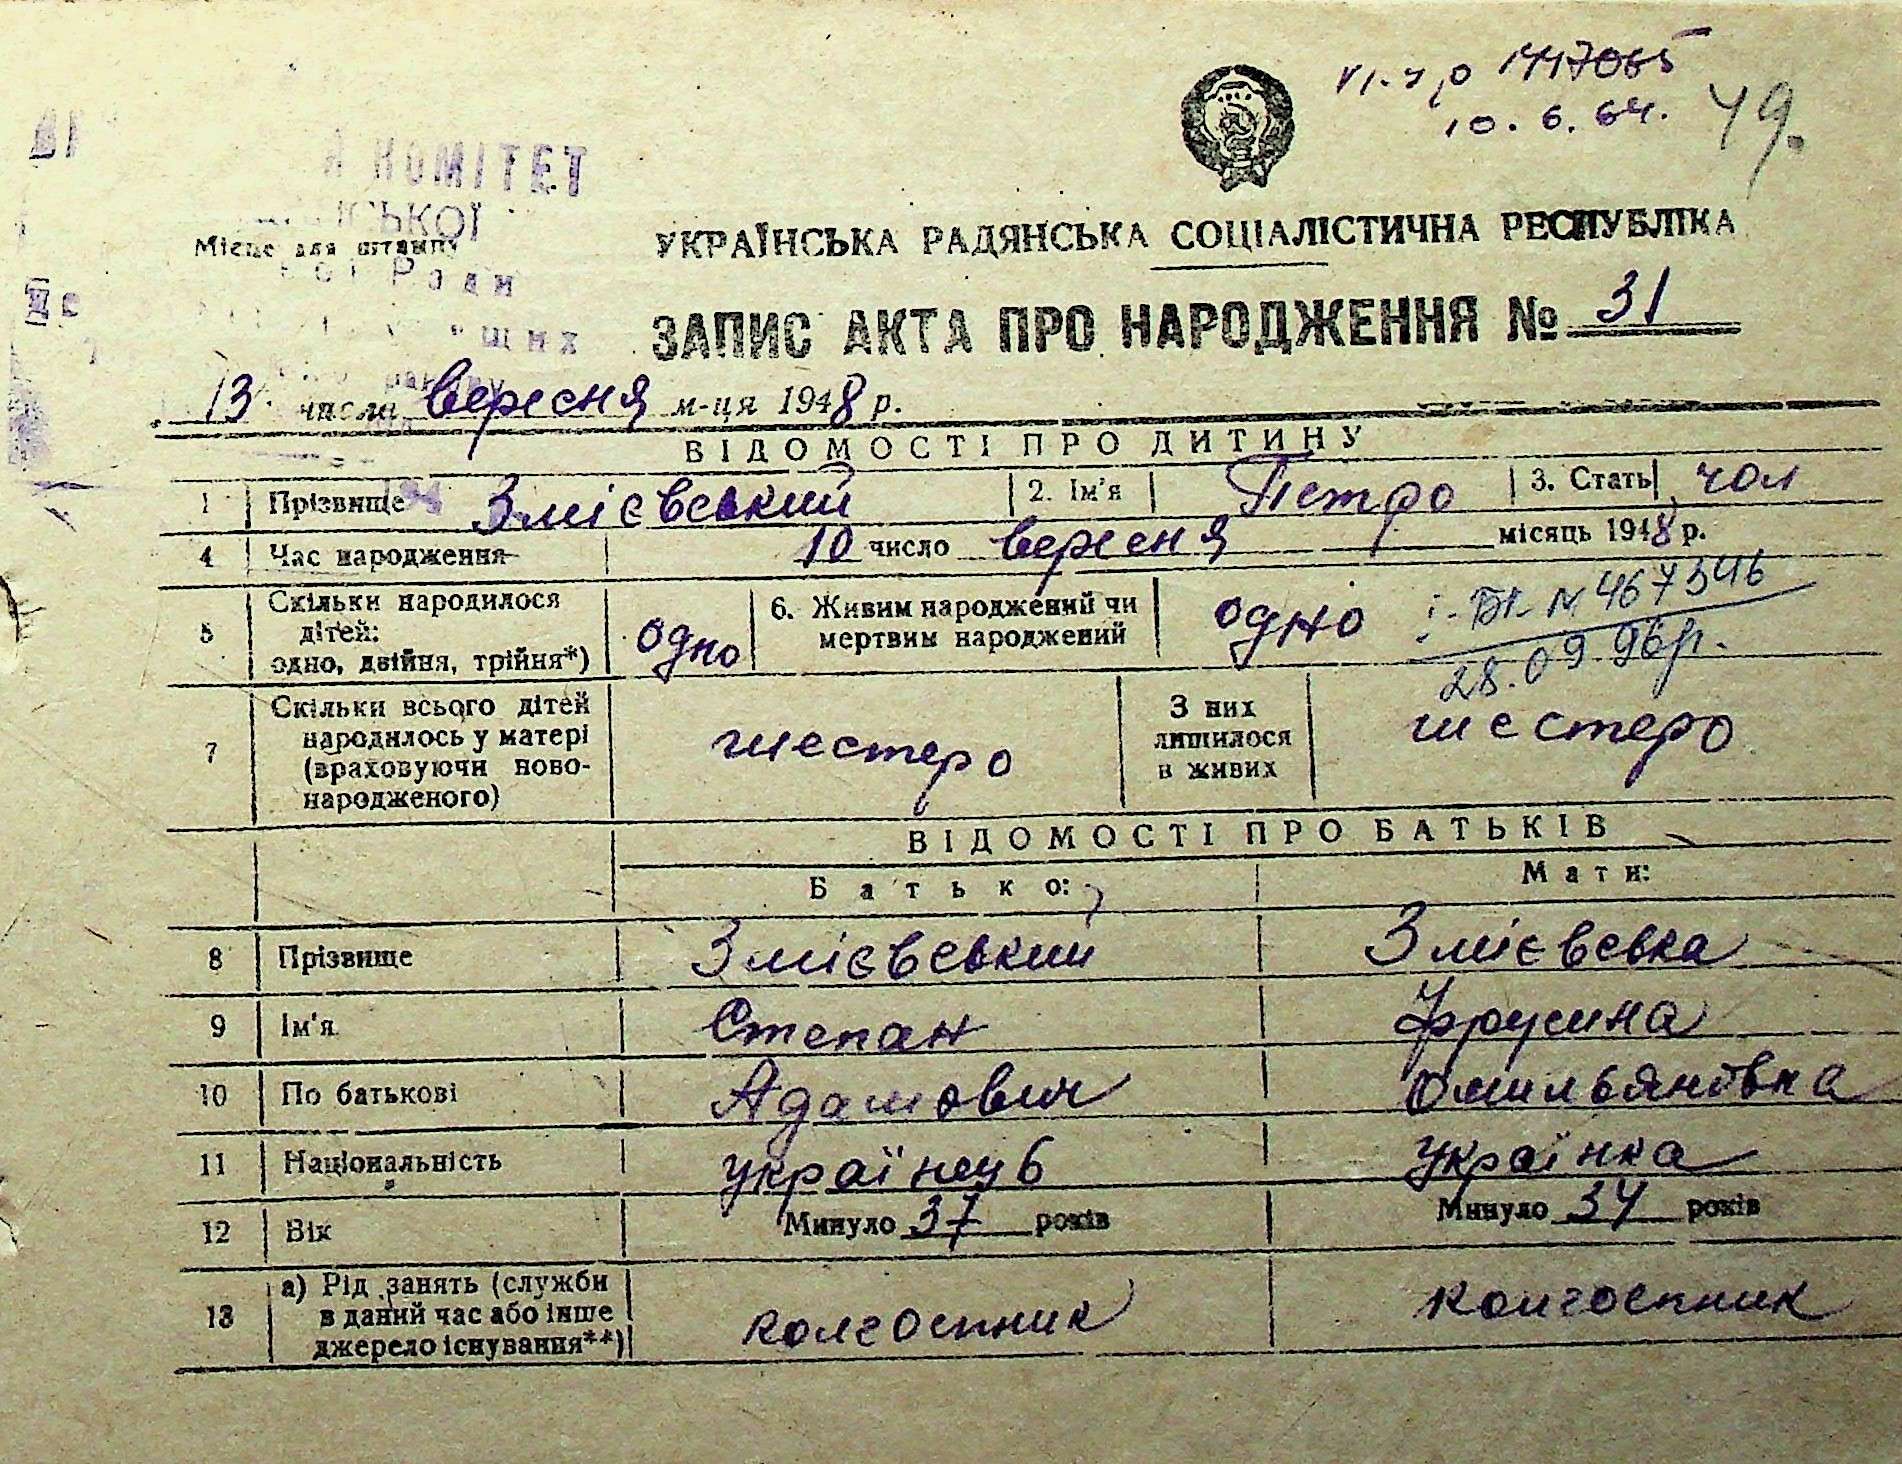 VI-УР 1447065
10.6.64. 49.
КОМІТЕТ
СЬКОЇ
Місце для штампу
Ради
УКРАЇНСЬКА РАДЯНСЬКА СОЦІАЛІСТИЧНА РЕСПУБЛІКА
ЗАПИС АКТА ПРО НАРОДЖЕННЯ № 31
13 числа вересня м-ця 1948 р.
ВІДОМОСТІ ПРО ДИТИНУ
1 Прізвище Змієвський 2. Ім'я Петро 3. Стать чол
4 Час народження 10 число вересня місяць 1948 р.
5 Скільки народилося дітей: одно, двійня, трійня*) одно 6. Живим народжений чи мертвим народжений одно
І-БК № 467346
28.09.96р.
7 Скільки всього дітей народилось у матері (враховуючи новонародженого) шестеро З них лишилося в живих шестеро
ВІДОМОСТІ ПРО БАТЬКІВ
Батько: Мати:
8 Прізвище Змієвський Змієвська
9 Ім'я Степан Фрусина
10 По батькові Адамович Омильянівна
11 Національність українець українка
12 Вік Минуло 37 років Минуло 34 років
13 а) Рід занять (служби в даний час або інше джерело існування**) колгоспник колгоспник